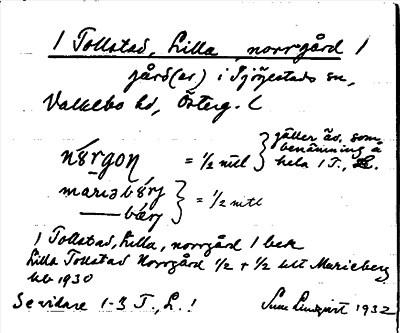 1 Tollstad, Lilla, norrgård 1
gård(ar) i Sjögestads sn,
Valkebo hd, Österg. l
nǫrgoņ = 1/2 mtl } gäller äv. som
benämning å
hela 1 T., L.
mariabærj } = 1/2 mtl
—— bærj
1 Tollstad, Lilla, norrgård 1 bek
Lilla Tollstad Norrgård 1/2 + 1/2 utt Marieberg
kb 1930
Se vidare 1-3 T., L.!
Sune Lindqvist 1932